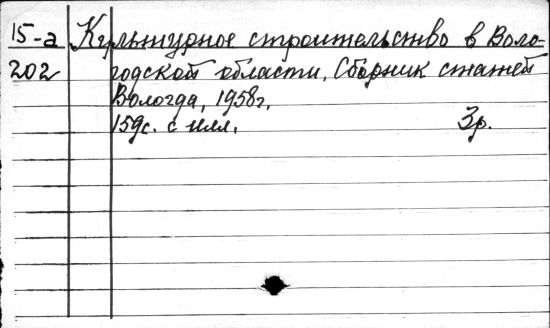 15-а Культурное строительство в Воло-
202 годской области. Сборник статей
Вологда, 1958г.
159с. с илл. 3р.